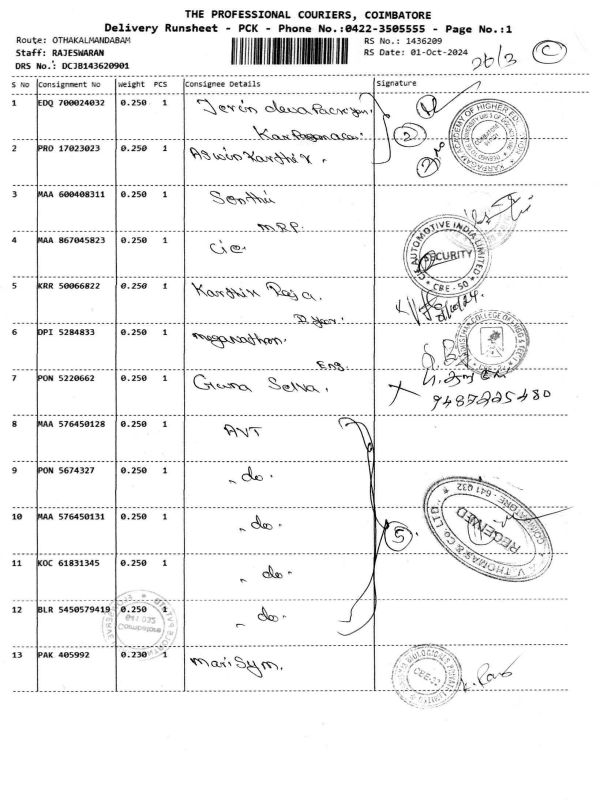 THE PROFESSIONAL COURIERS, COIMBATORE
Delivery Runsheet - PCK - Phone No.:0422-3505555 - Page No.:1
Route: OTHAKALMANDABAM
RS No.: 1436209
Staff: RAJESWARAN
RS Date: 01-Oct-2024
DRS No.: DCJB143620901
26/3 C
S No Consignment No Weight PCS Consignee Details Signature
1 EDQ 700024032 0.250 1
2
2 PRO 17023023 0.250 1 Aswin Karthik.
3 MAA 600408311 0.250 1 Senthil
M.R.P.
4 MAA 867045823 0.250 1 CIE.
AUTOMOTIVE INDIA LIMITED
SECURITY
CBE - 50
5 KRR 50066822 0.250 1 Karthik Raja.
II year.
6 DPI 5284833 0.250 1 meganathan.
Eng.
7 PON 5220662 0.250 1 Gnana Selva.
9487225480
8 MAA 576450128 0.250 1 AVT
9 PON 5674327 0.250 1 " do "
10 MAA 576450131 0.250 1 " do "
5
V. THOMAS & CO. LTD.
RECEIVED
COIMBATORE - 641 032
11 KOC 61831345 0.250 1 " do "
12 BLR 5450579419 0.250 1 " do "
641 035
Coimbatore
13 PAK 405992 0.230 1 Mari Sym.